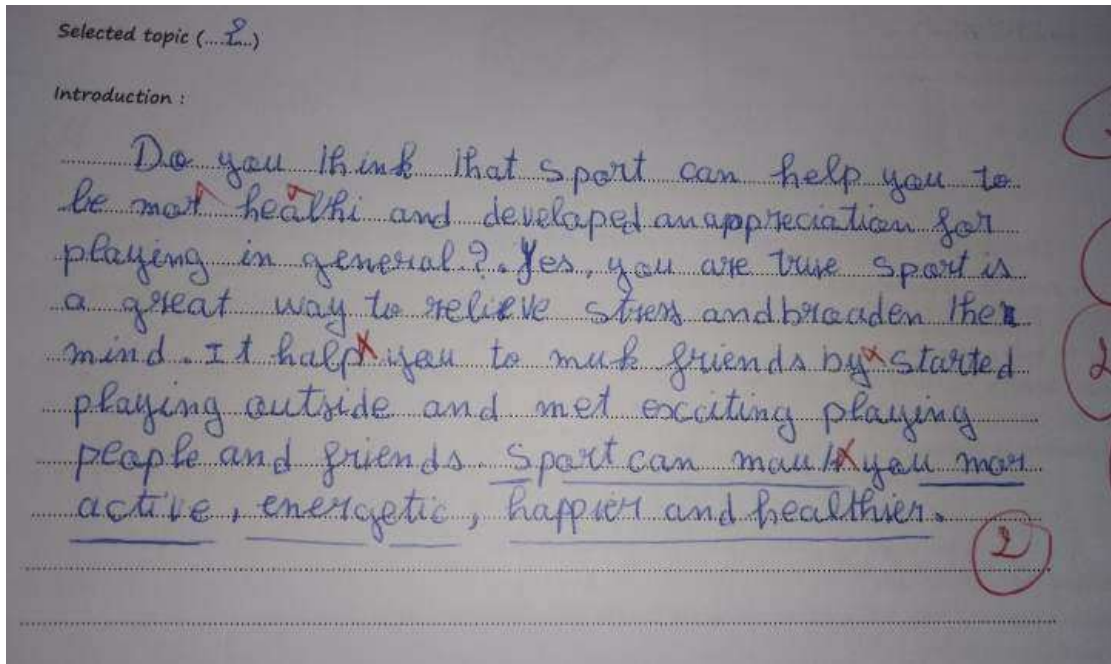 Selected topic (....2...)
Introduction :
Do you think that sport can help you to
be mor healthi and developed an appreciation for
playing in general?. Yes, you are true sport is
a great way to relieve stress and broaden the
mind. It halp you to muk friends by started
playing outside and met exciting playing
people and friends. Sport can mauk you mor
active, energetic, happier and healthier.
2